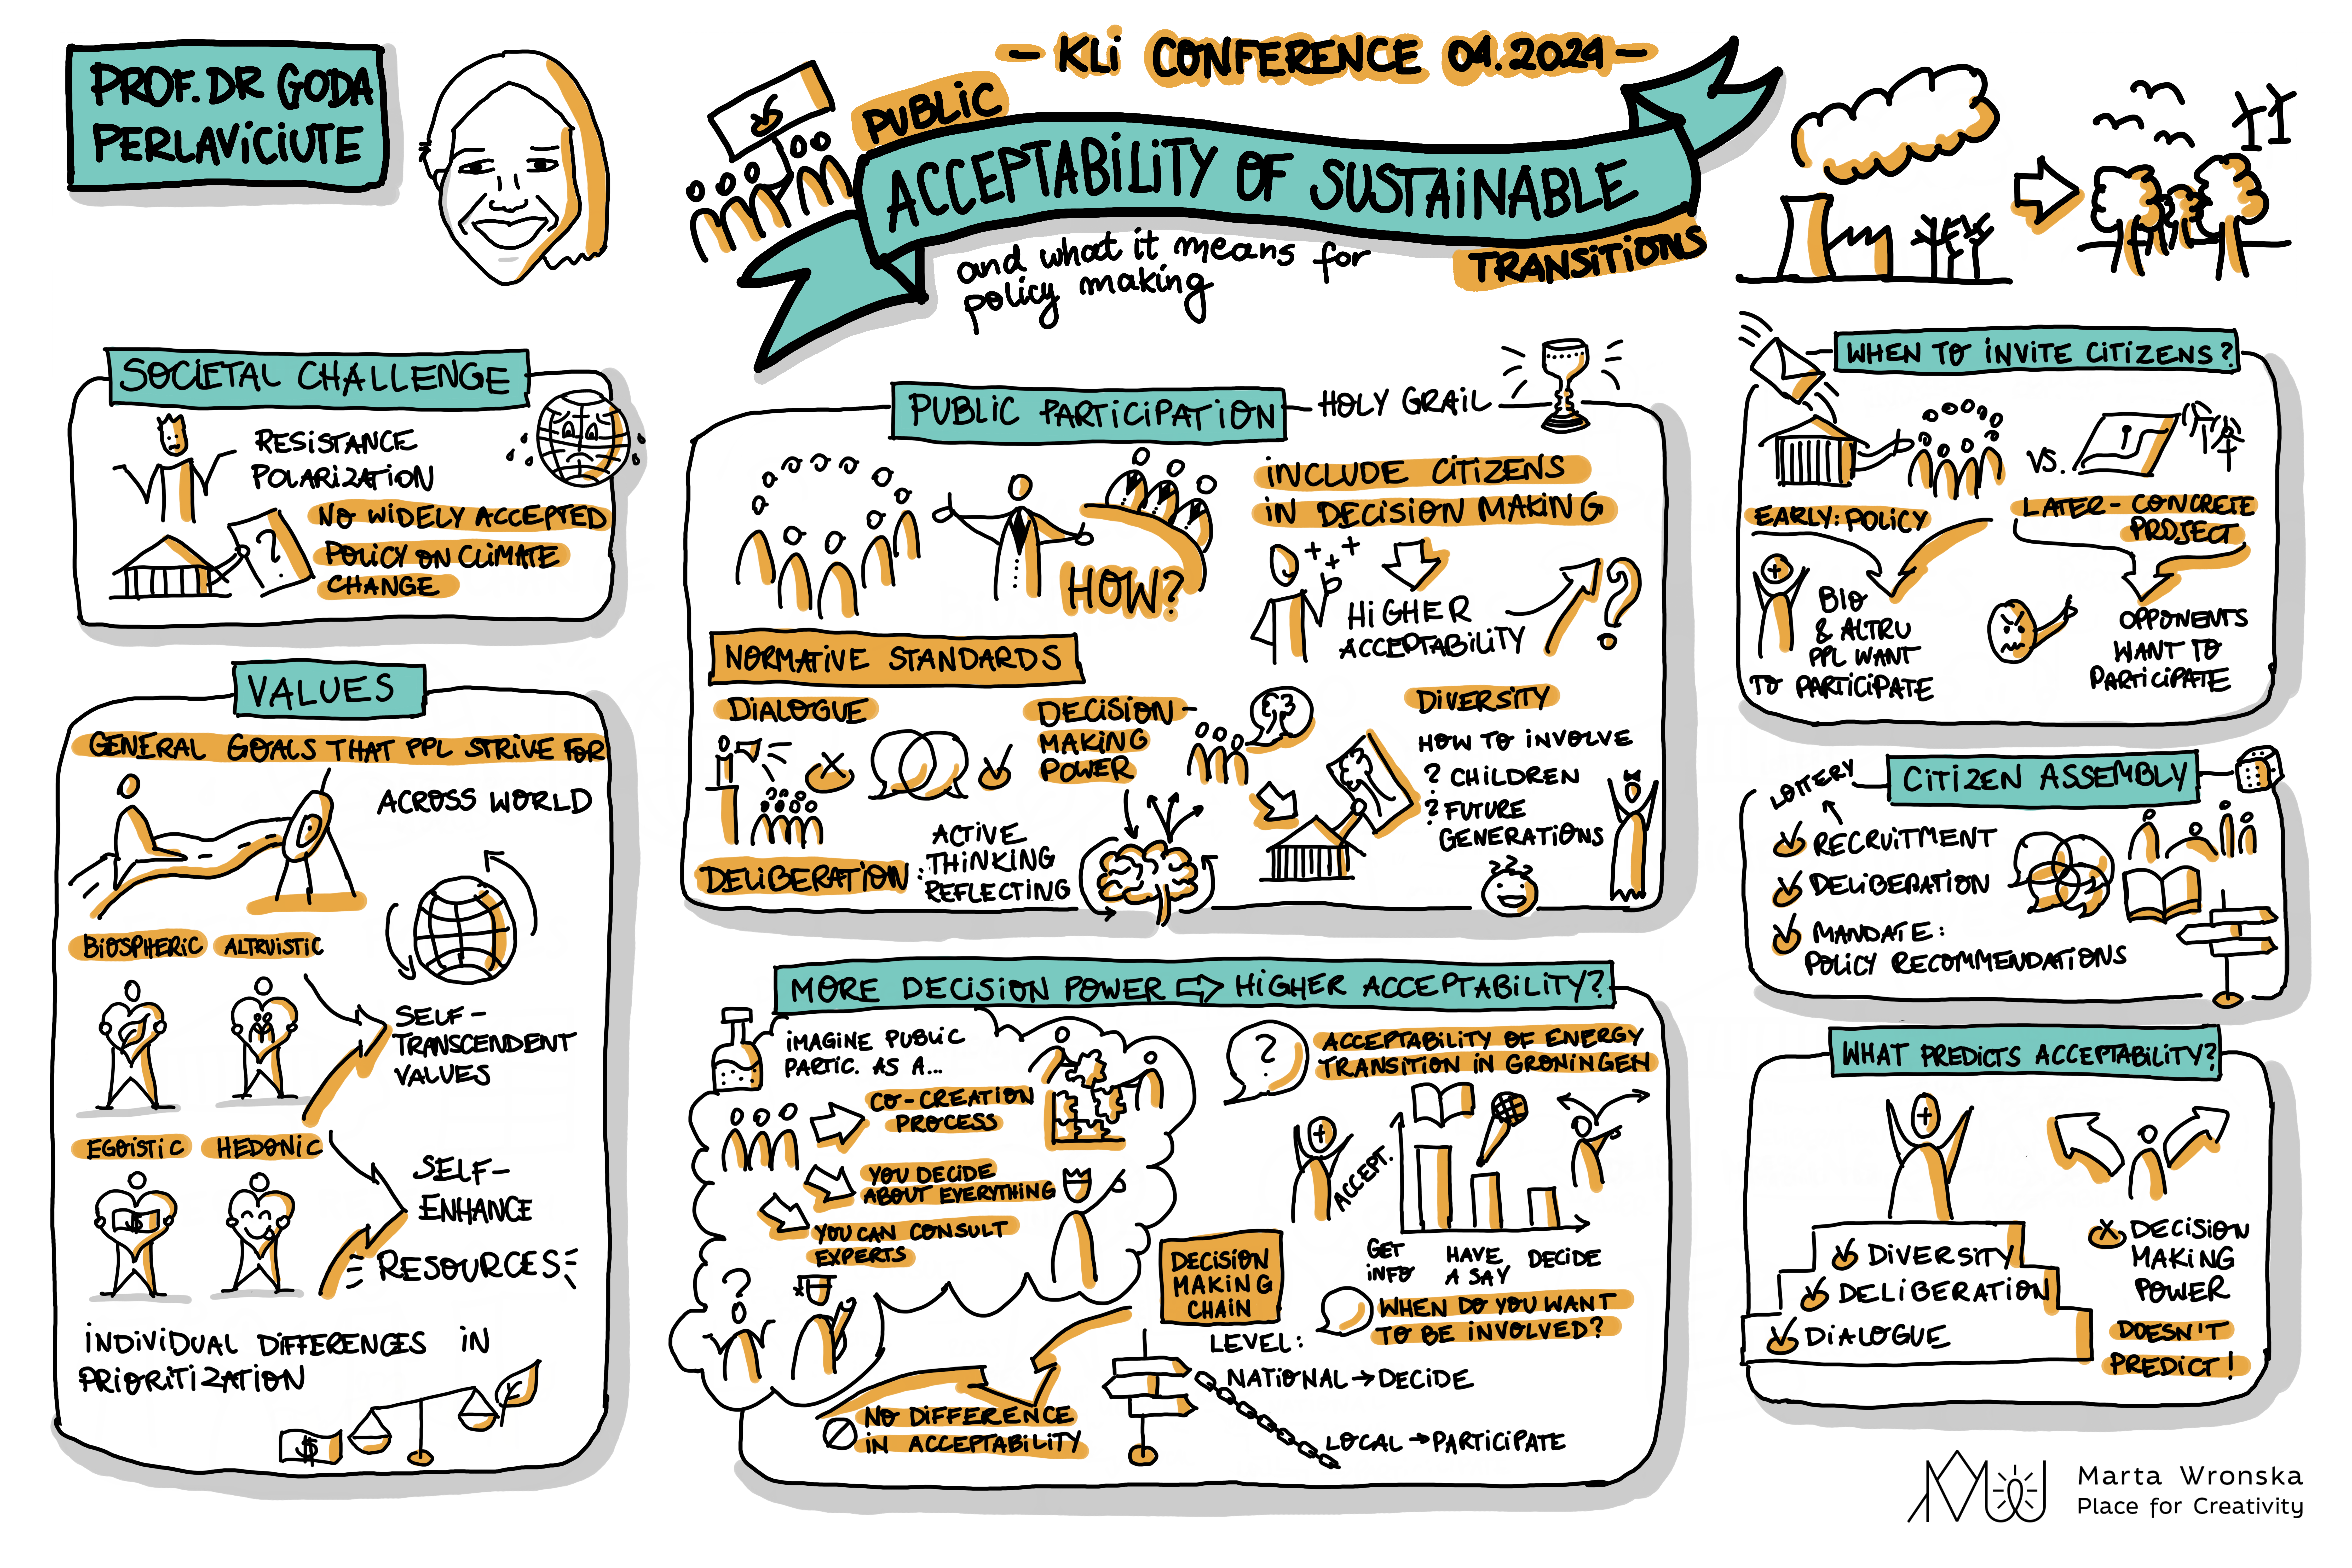 PROF. DR GODA
PERLAVICIUTE
- KLI CONFERENCE 04.2024 -
PUBLIC
ACCEPTABILITY OF SUSTAINABLE
TRANSITIONS
and what it means for
policy making
SOCIETAL CHALLENGE
RESISTANCE
POLARIZATION
NO WIDELY ACCEPTED
POLICY ON CLIMATE
CHANGE
?
VALUES
GENERAL GOALS THAT PPL STRIVE FOR
ACROSS WORLD
BIOSPHERIC
ALTRUISTIC
SELF-
TRANSCENDENT
VALUES
EGOISTIC
HEDONIC
SELF-
ENHANCE
$
RESOURCES
INDIVIDUAL DIFFERENCES IN
PRIORITIZATION
$
PUBLIC PARTICIPATION
HOLY GRAIL
HOW?
INCLUDE CITIZENS
IN DECISION MAKING
+++
HIGHER
ACCEPTABILITY
?
NORMATIVE STANDARDS
DIALOGUE
DECISION-
MAKING
POWER
DELIBERATION:
ACTIVE
THINKING
REFLECTING
DIVERSITY
HOW TO INVOLVE
? CHILDREN
? FUTURE
GENERATIONS
???
MORE DECISION POWER ⇨ HIGHER ACCEPTABILITY?
IMAGINE PUBLIC
PARTIC. AS A...
CO-CREATION
PROCESS
YOU DECIDE
ABOUT EVERYTHING
YOU CAN CONSULT
EXPERTS
?
NO DIFFERENCE
IN ACCEPTABILITY
?
ACCEPTABILITY OF ENERGY
TRANSITION IN GRONINGEN
ACCEPT.
GET
INFO
HAVE
A SAY
DECIDE
DECISION
MAKING
CHAIN
WHEN DO YOU WANT
TO BE INVOLVED?
LEVEL:
NATIONAL → DECIDE
LOCAL → PARTICIPATE
WHEN TO INVITE CITIZENS?
VS.
EARLY: POLICY
LATER - CONCRETE
PROJECT
BIO
& ALTRU
PPL WANT
TO PARTICIPATE
OPPONENTS
WANT TO
PARTICIPATE
CITIZEN ASSEMBLY
LOTTERY
RECRUITMENT
DELIBERATION
MANDATE:
POLICY RECOMMENDATIONS
WHAT PREDICTS ACCEPTABILITY?
DIVERSITY
DELIBERATION
DIALOGUE
DECISION
MAKING
POWER
DOESN'T
PREDICT!
Marta Wronska
Place for Creativity